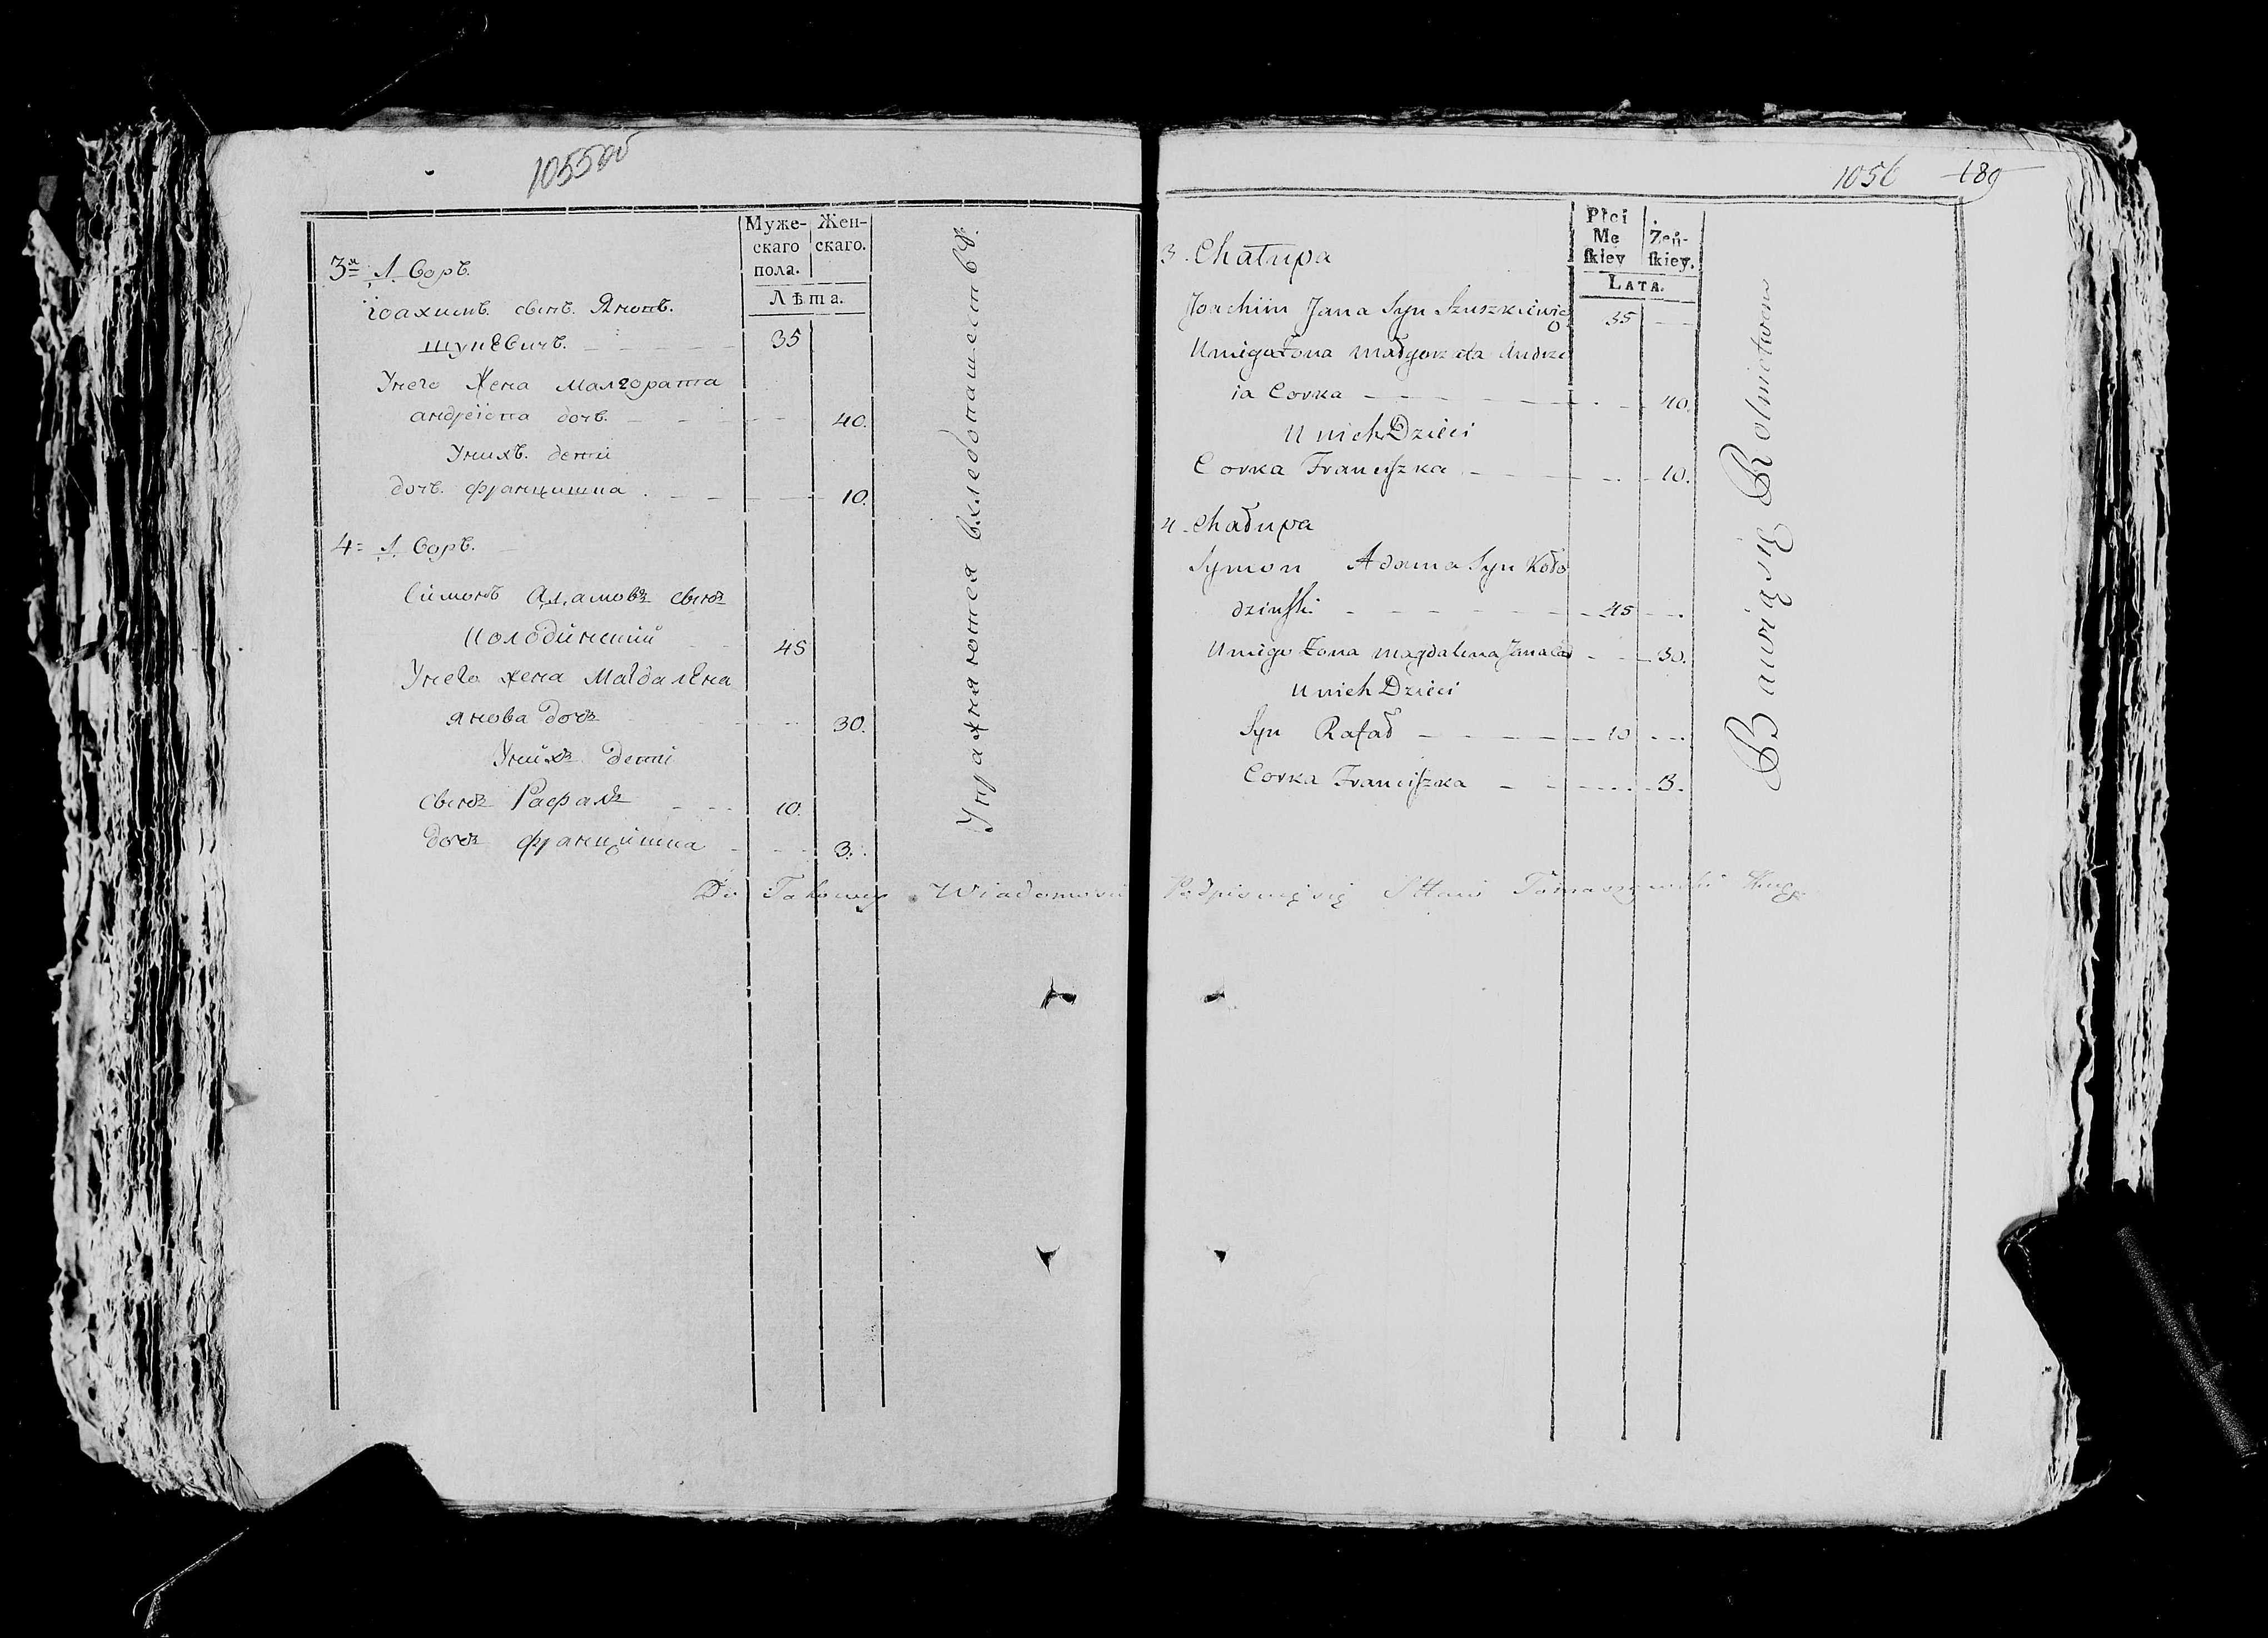 1055об
Муже-
скаго
пола.
Жен-
скаго.
Лѣта.
3й Дворъ.
іоахимъ сынъ Яновъ
шушкевичъ. 35
Унего жена малгората
андреіова дочъ. 40.
Унихъ дети
дочъ францишка. 10.
4= Дворъ.
Сімонъ Адамовъ сынъ
колодинский 45
Унего жена Магдалена
янова дочъ 30.
Унихъ деті
сынъ Рафалъ 10.
дочъ францишка 3.
Упражняются вхлебопашеств
1056 189
Płci
Mę
ſkiey
Żeń-
ſkiey.
LATA.
3. Chałupa
Joachim Jana Syn Szuszkiewic 35
U niego Żona małgorzata Andrze
ia Corka 40.
U nich Dzieci
Corka Franciſzka 10.
4. Chałupa
Symon Adama Syn Koło
dzinſki 45
U niego Żona magdalena Jana Co 30.
U nich Dzieci
Syn Rafał 10
Corka Franciſzka 3.
Bawią się Rolnictwem
Do Takowey Wiadomosci Podpisuię się